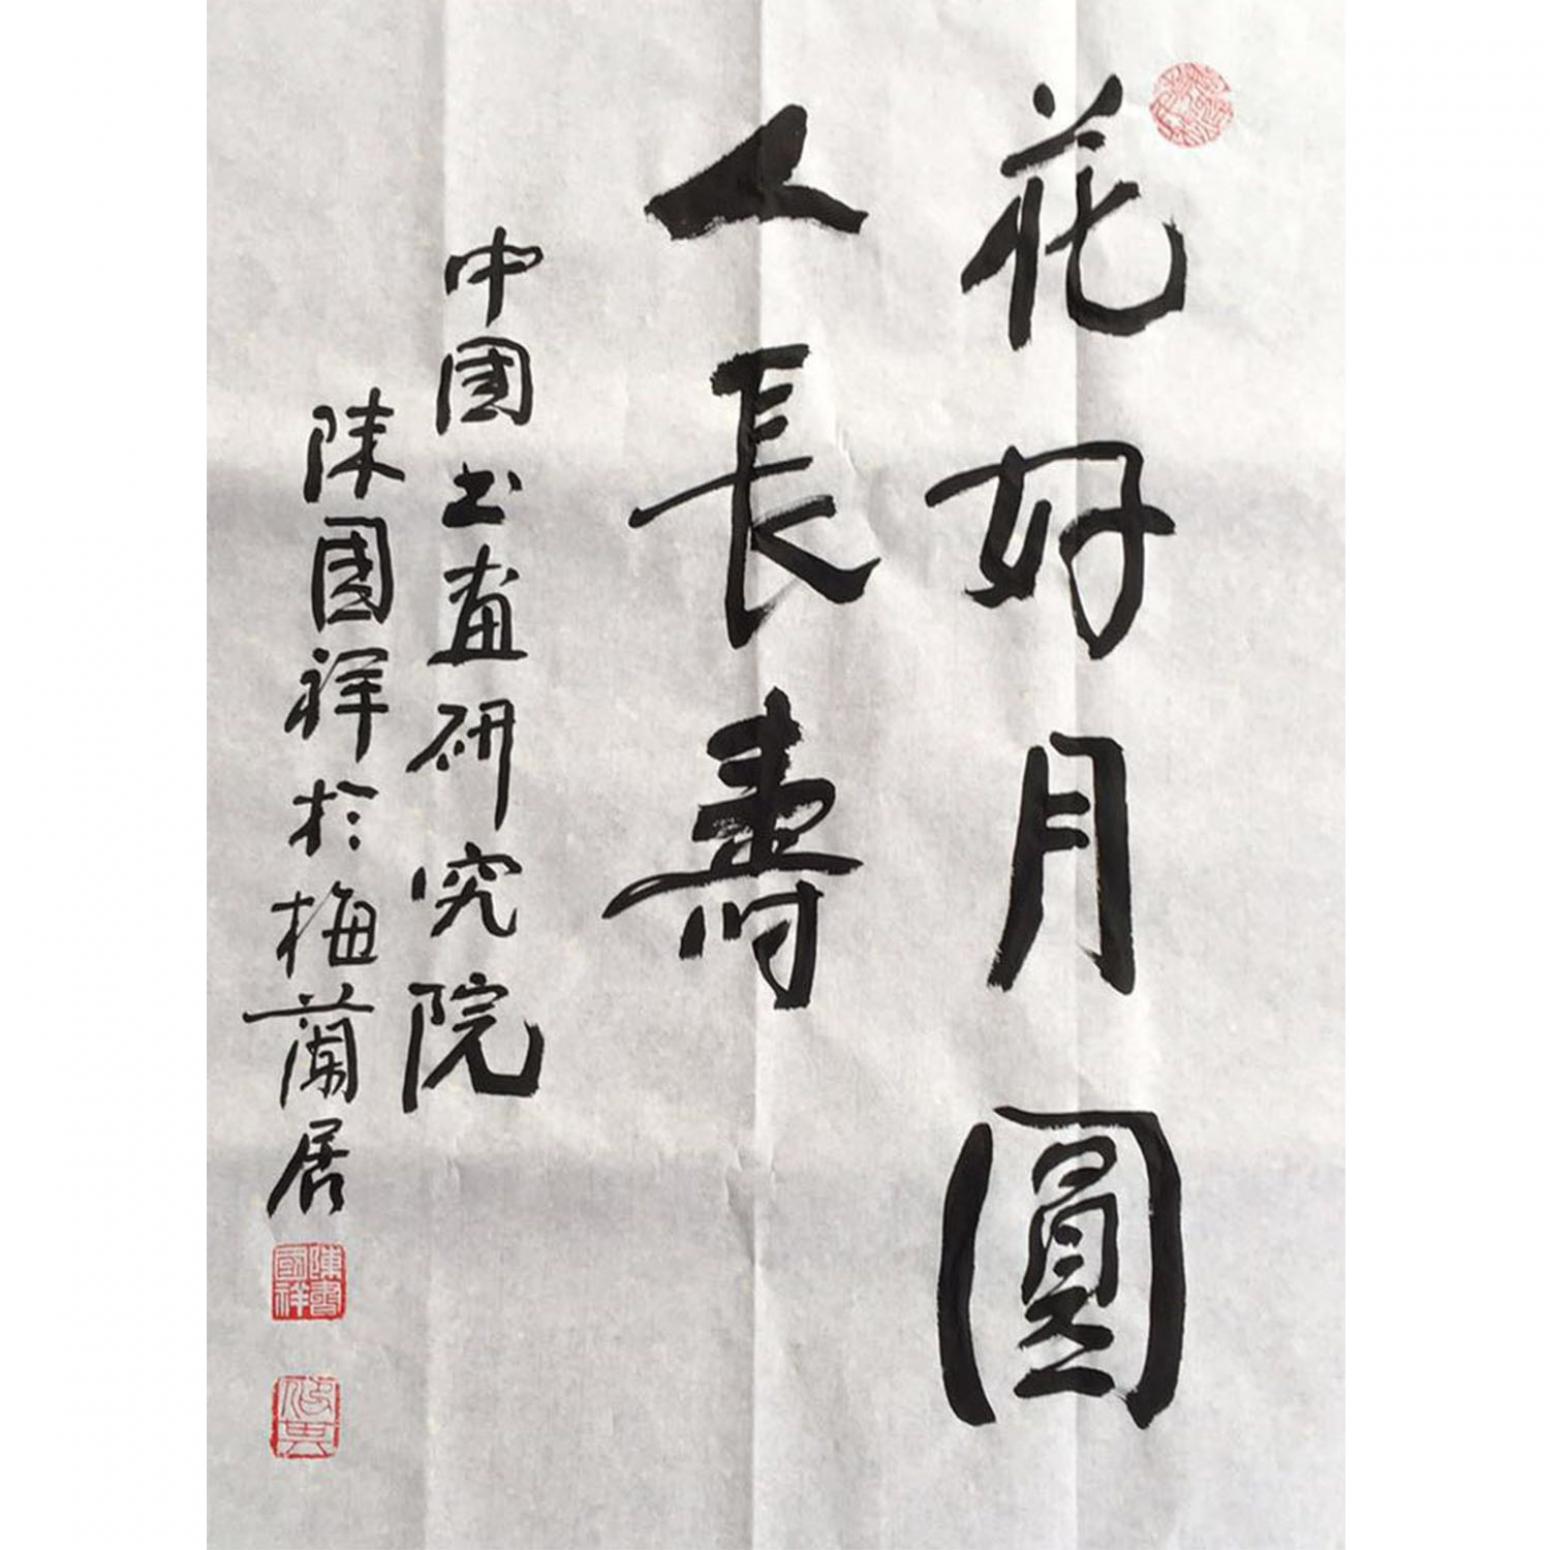 花好月圓
人長壽
中國书畫研究院
陳國祥於梅蘭居
陳國祥書